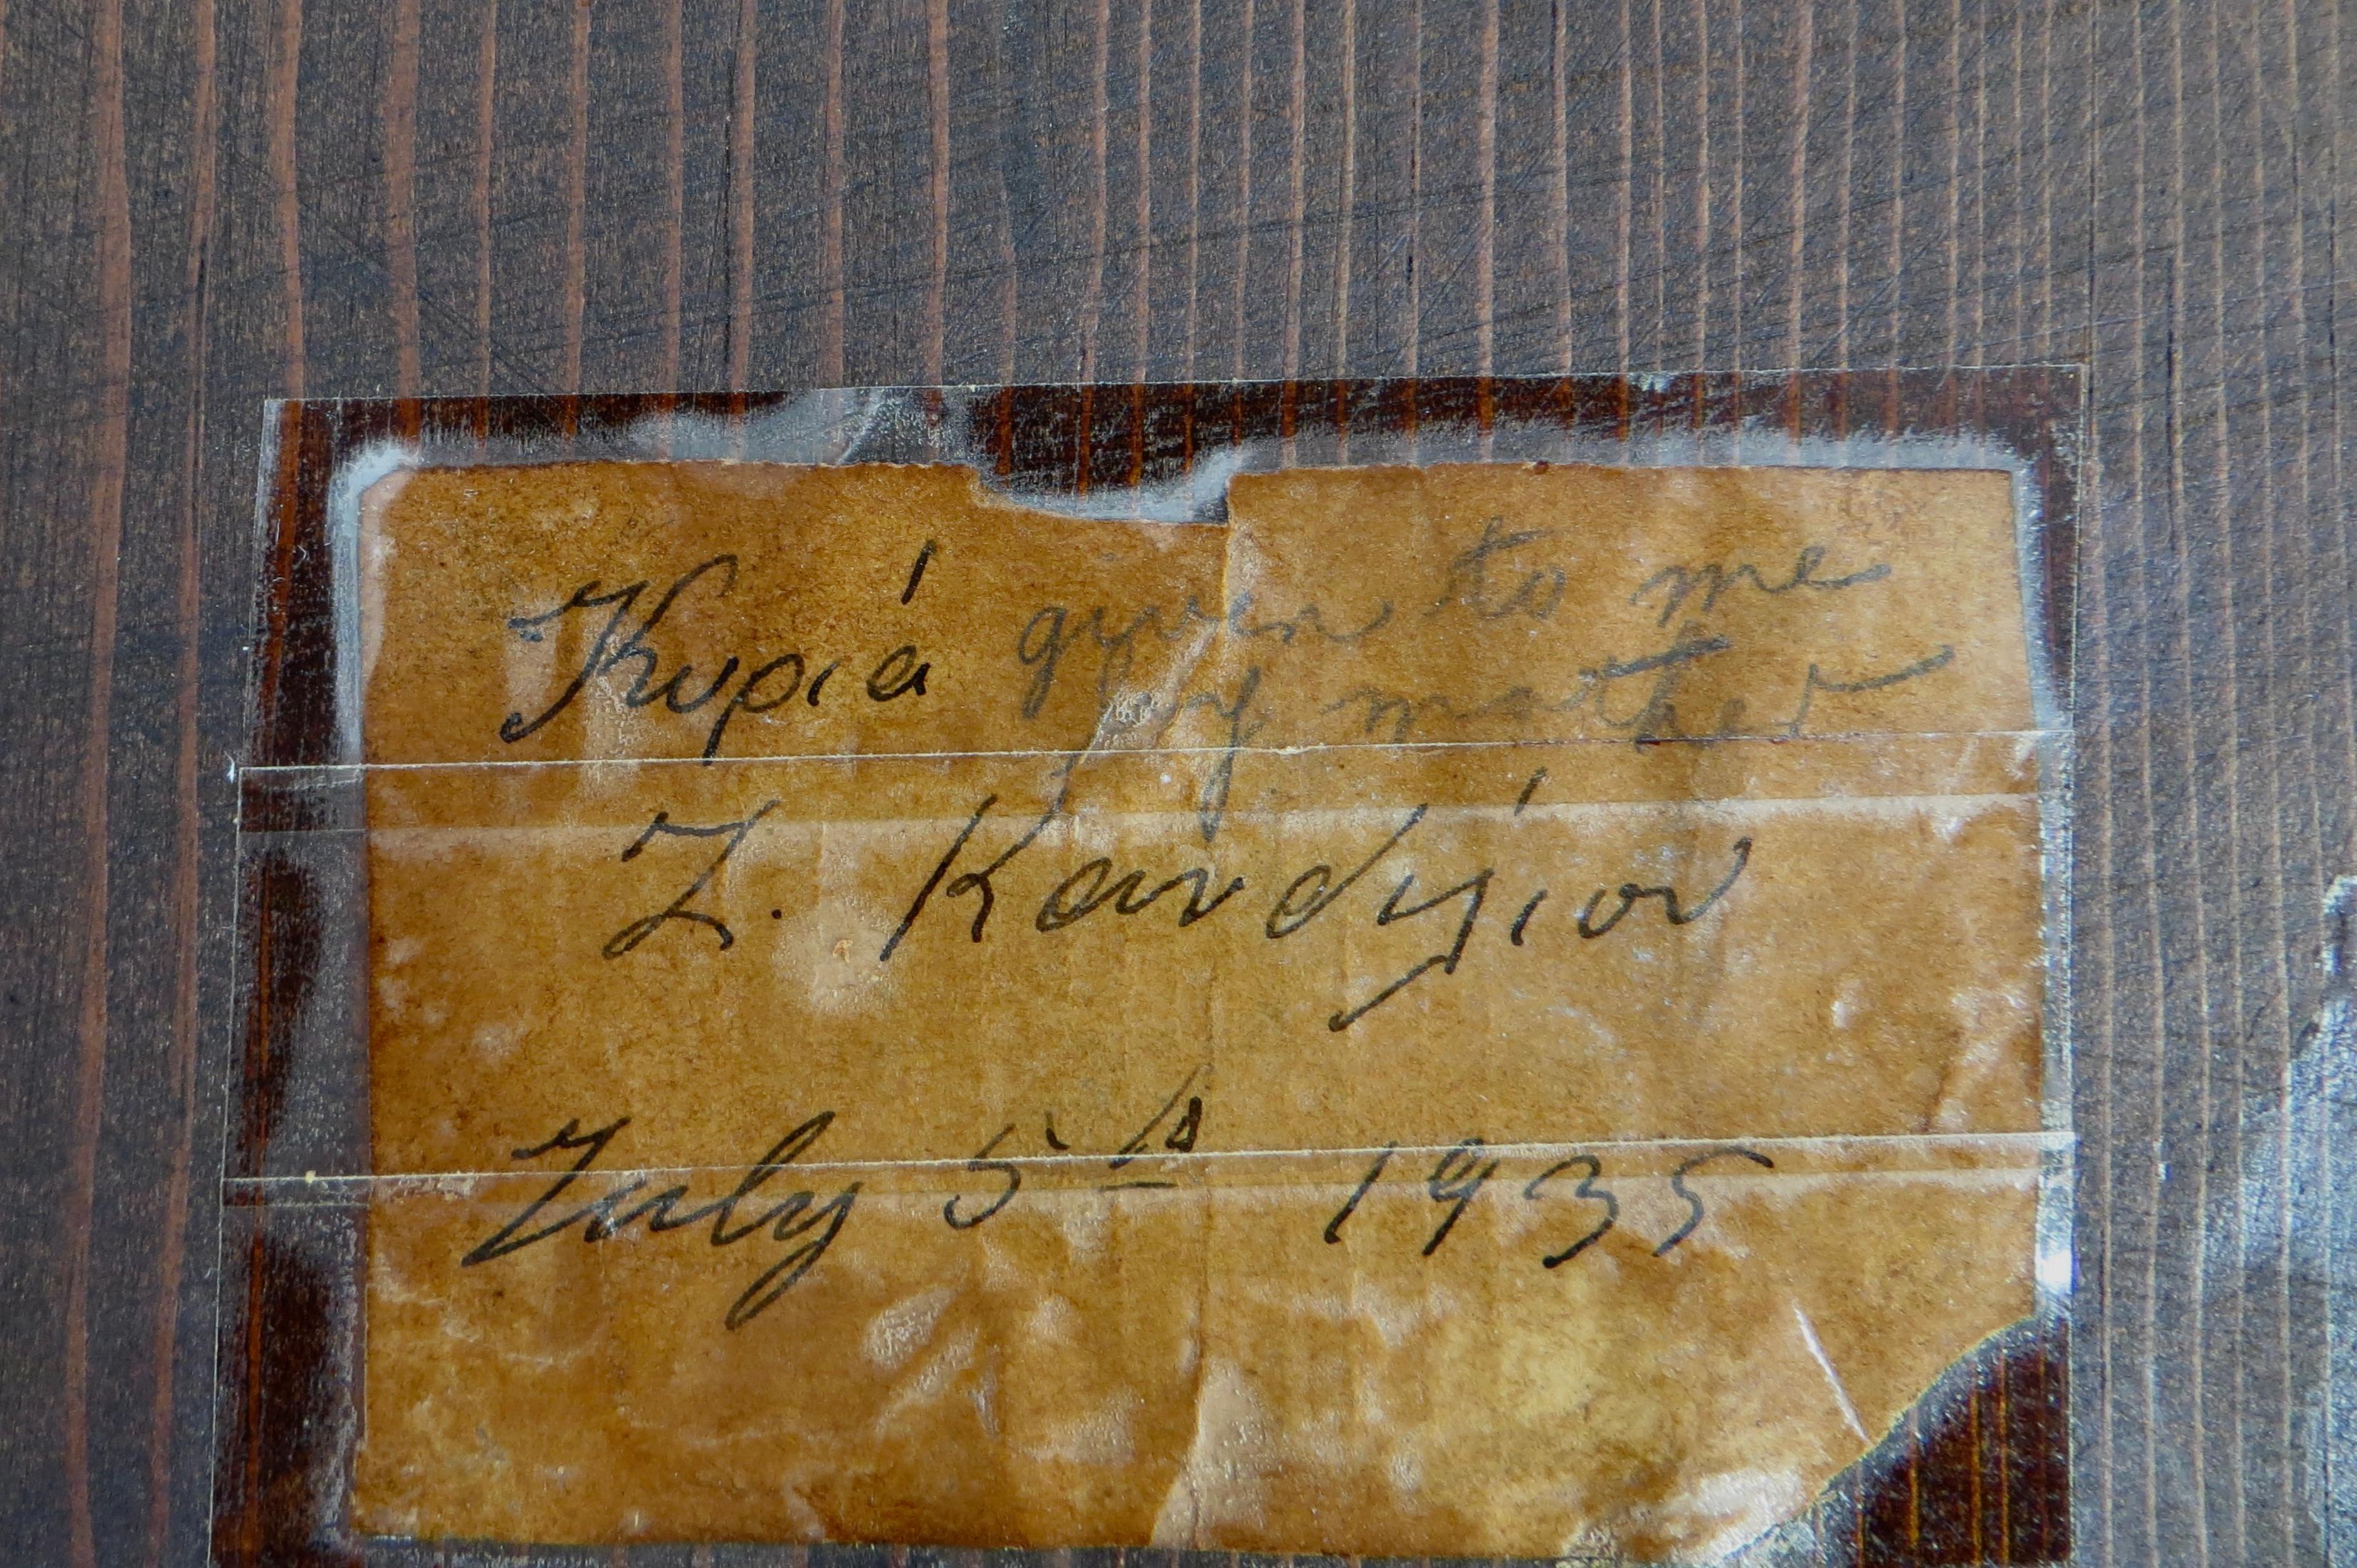 Κυριά given to me
by mother
Ζ. Κανδηλίου
July 5th 1935